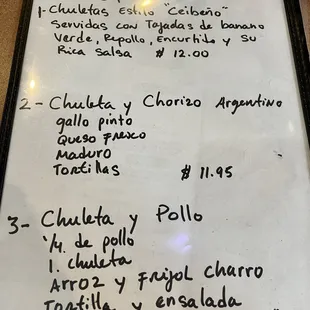 1- Chuletas Estilo "Ceibeño"
Servidas con Tajadas de banano
Verde, Repollo, Encurtido y su
Rica Salsa $ 12.00
2- Chuleta y Chorizo Argentino
gallo pinto
Queso Fresco
Maduro
Tortillas $ 11.95
3- Chuleta y Pollo
1/4. de pollo
1. chuleta
Arroz y Frijol charro
Tortilla y ensalada